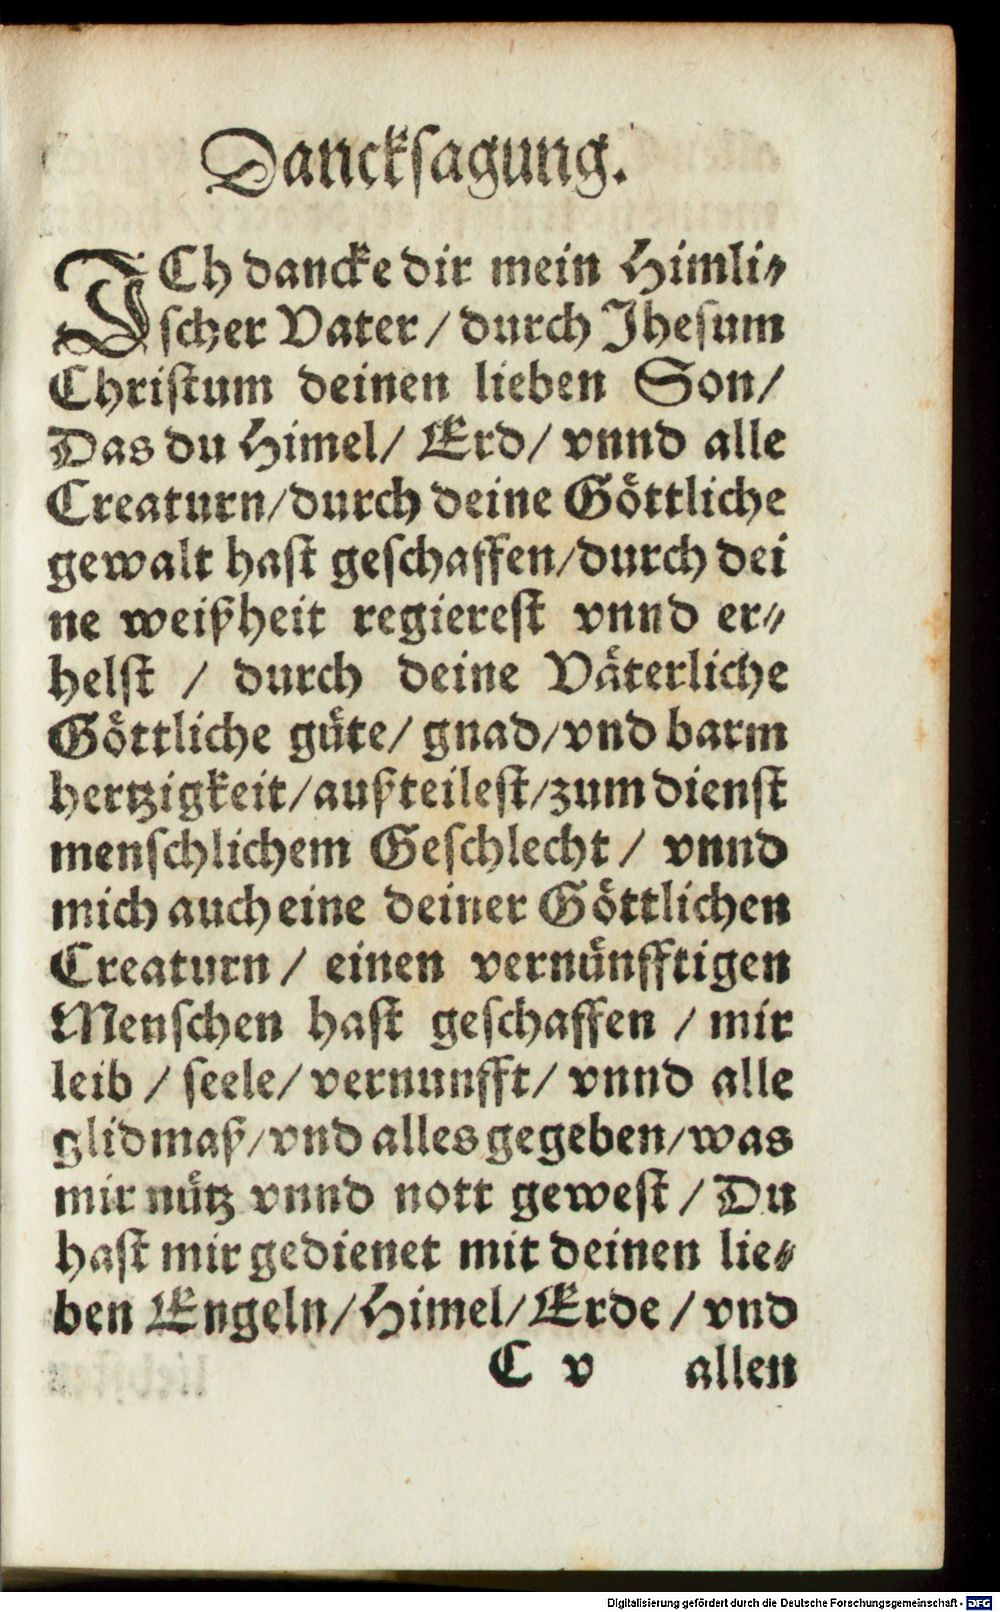 Danckſagung.
ICh dancke dir mein Himli⸗
ſcher Vater / durch Jheſum
Chriſtum deinen lieben Son/
Das du Himel/ Erd/ vnnd alle
Creaturn/durch deine Göttliche
gewalt haſt geſchaffen/durch dei
ne weißheit regiereſt vnnd er⸗
helſt / durch deine Väterliche
Göttliche güte/ gnad/vnd barm
hertzigkeit/außteileſt/zum dienſt
menſchlichem Geſchlecht / vnnd
mich auch eine deiner Göttlichen
Creaturn / einen vernünfftigen
Menſchen haſt geſchaffen / mir
leib / ſeele/ vernunfft/ vnnd alle
glidmaß/vnd alles gegeben/was
mir nütz vnnd nott geweſt / Du
haſt mir gedienet mit deinen lie⸗
ben Engeln/Himel/Erde / vnd
C v allen
Digitalisierung gefördert durch die Deutsche Forschungsgemeinschaft - DFG